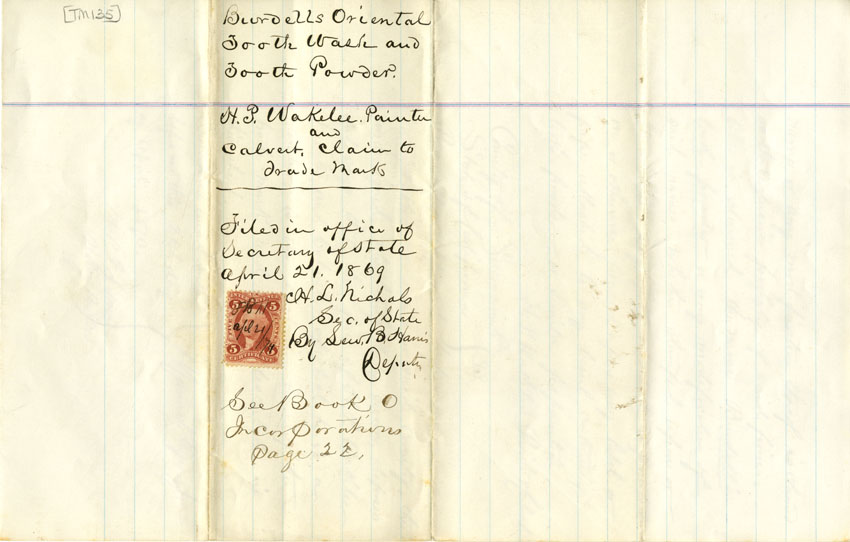 [TM135]
Burdells Oriental
Tooth Wash and
Tooth Powder.
H. P. Wakelee. Painter
and
Calvert, Claim to
Trade Mark
Filed in office of
Secretary of State
April 21. 1869
H. L. Nichols
Sec. of State
By Lew. B. Harris
Deputy
5 5
apl 21
5
CERTIFICATE
See Book O
Incorporations
Page 22,